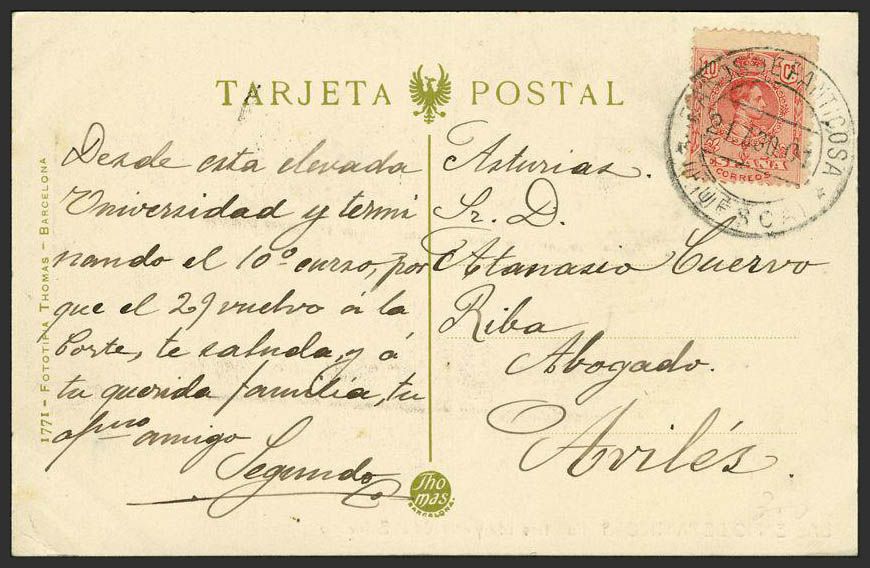 TARJETA POSTAL
Desde esta elevada
Universidad y termi
nando el 10º curso, por
que el 29 vuelvo á la
Corte, te saluda, y á
tu querida familia, tu
afmo amigo
Segundo
Asturias.
Sr. D.
Atanasio Cuervo
Riba
Abogado.
Avilés.
1771 – FOTOTIPIA THOMAS – BARCELONA
Thomas
BARCELONA.
10 Cs
ESPAÑA
CORREOS
PANTICOSA
(HUESCA)